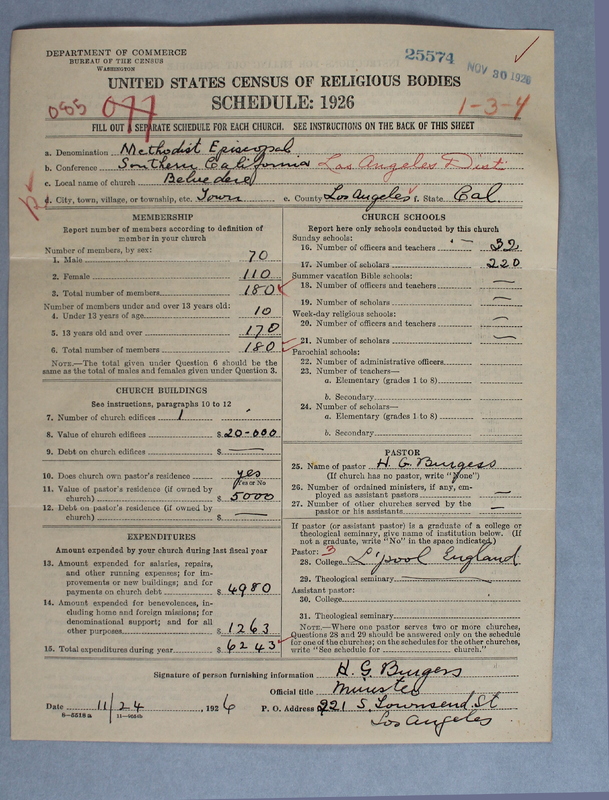 DEPARTMENT OF COMMERCE
BUREAU OF THE CENSUS
WASHINGTON
25574
NOV 30 1926
UNITED STATES CENSUS OF RELIGIOUS BODIES
SCHEDULE: 1926
085 077
1-3-4
FILL OUT A SEPARATE SCHEDULE FOR EACH CHURCH. SEE INSTRUCTIONS ON THE BACK OF THIS SHEET
a. Denomination Methodist Episcopal
b. Conference Southern California Los Angeles Dist
c. Local name of church Belvedere
d. City, town, village, or township, etc. Town e. County Los Angeles f. State Cal.
MEMBERSHIP
Report number of members according to definition of member in your church
Number of members, by sex:
1. Male 70
2. Female 110
3. Total number of members 180
Number of members under and over 13 years old:
4. Under 13 years of age 10
5. 13 years old and over 170
6. Total number of members 180
NOTE.—The total given under Question 6 should be the
same as the total of males and females given under Question 3.
CHURCH BUILDINGS
See instructions, paragraphs 10 to 12
7. Number of church edifices 1
8. Value of church edifices $ 20-000
9. Debt on church edifices $ —
10. Does church own pastor's residence yes
Yes or No
11. Value of pastor's residence (if owned by
church) $ 5000
12. Debt on pastor's residence (if owned by
church) $ —
EXPENDITURES
Amount expended by church during last fiscal year
13. Amount expended for salaries, repairs,
and other running expenses; for im-
provements or new buildings; and for
payments on church debt $ 4980
14. Amount expended for benevolences, in-
cluding home and foreign missions; for
denominational support; and for all
other purposes $ 1263
15. Total expenditures during year $ 6243
CHURCH SCHOOLS
Report here only schools conducted by this church
Sunday schools:
16. Number of officers and teachers 32
17. Number of scholars 220
Summer vacation Bible schools:
18. Number of officers and teachers —
19. Number of scholars —
Week-day religious schools:
20. Number of officers and teachers —
21. Number of scholars —
Parochial schools:
22. Number of administrative officers
23. Number of teachers—
a. Elementary (grades 1 to 8)
b. Secondary
24. Number of scholars—
a. Elementary (grades 1 to 8)
b. Secondary
PASTOR
25. Name of pastor H. G. Burgess
(If church has no pastor, write "None")
26. Number of ordained ministers, if any, em-
ployed as assistant pastors —
27. Number of other churches served by the
pastor or his assistants —
If pastor (or assistant pastor) is a graduate of a college or
theological seminary, give name of institution below. (If
not a graduate, write "No" in the space indicated.)
Pastor: 3
28. College L'pool England
29. Theological seminary —
Assistant pastor:
30. College
31. Theological seminary
NOTE.—Where one pastor serves two or more churches,
Questions 28 and 29 should be answered only on the schedule
for one of the churches; on the schedules for the other churches,
write "See schedule for church."
Signature of person furnishing information H. G. Burgess
Official title Minister
Date 11/24, 1926 P. O. Address 221 S. Townsend. St
Los Angeles
8-5518 a